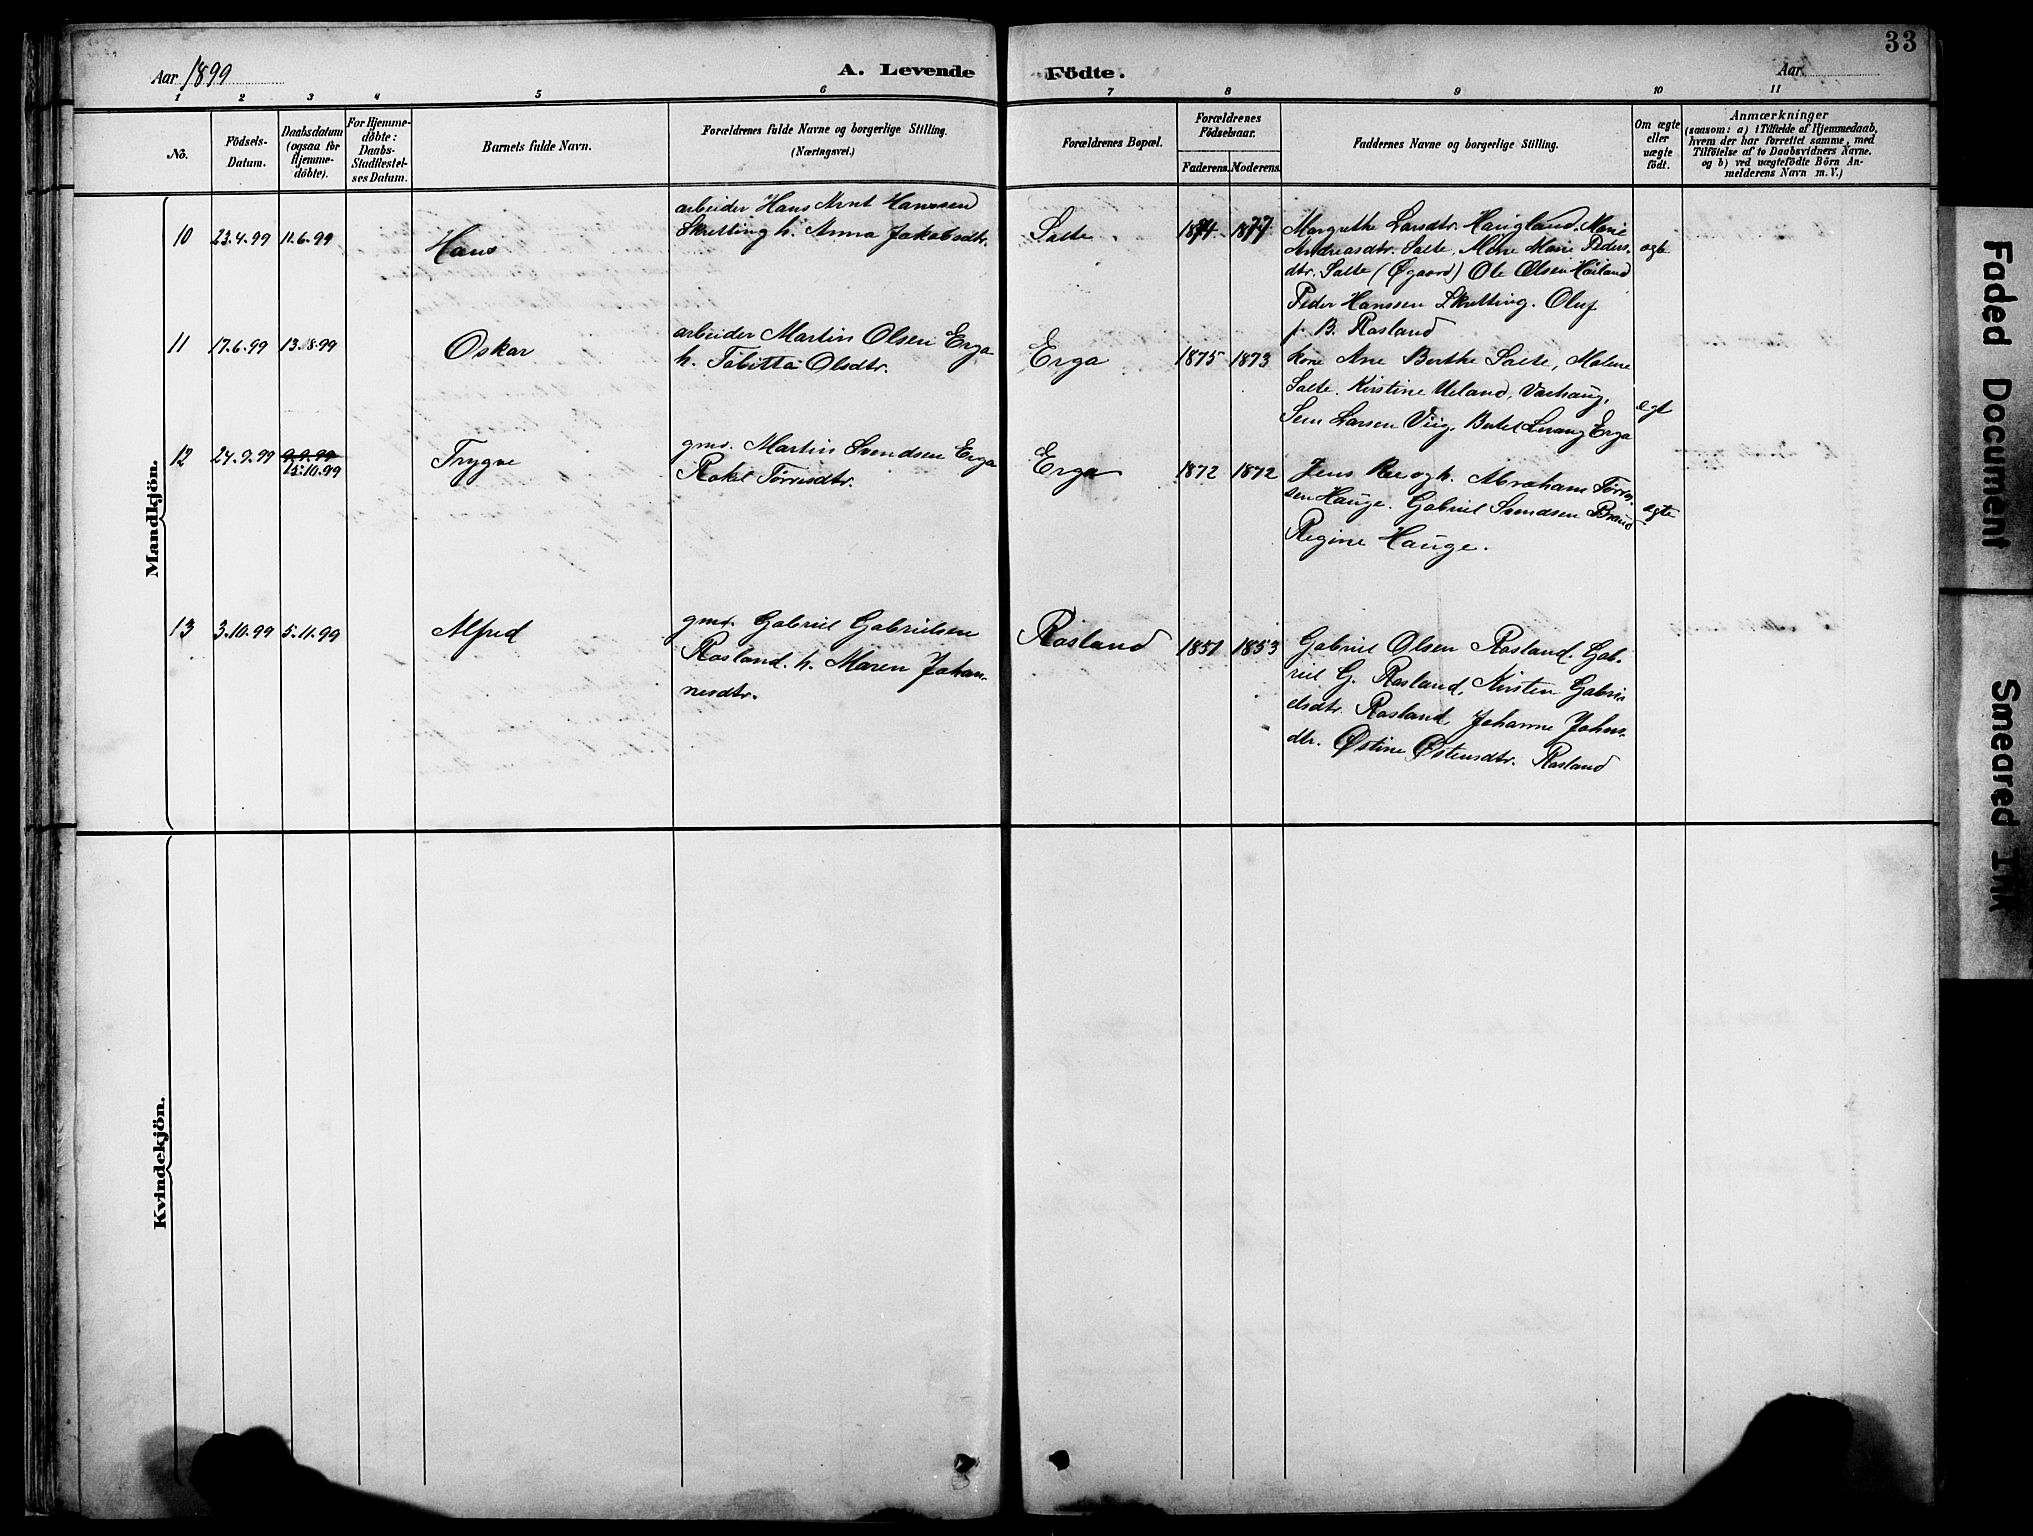 33
Aar 1899
A. Levende Födte.
Aar
1 2 3 4 5 6 7 8 9 10 11
No.
Födsels-
Datum.
Daabsdatum
(ogsaa for
Hjemme-
döbte).
For Hjemme-
döbte:
Daabs-
Stadfæstel-
ses Datum.
Barnets fulde Navn.
Forældrenes fulde Navne og borgerlige Stilling.
(Næringsvei.)
Forældrenes Bopæl.
Forældrenes
Födselsaar.
Faderens. Moderens.
Faddernes Navne og borgerlige Stilling.
Om ægte
eller
uægte
født.
Anmærkninger
(saasom: a) i Tilfælde af Hjemmedaab,
hvem der har forrettet samme, med
Tilföielse af to Daabsvidners Navne.
og b) ved uægtefödte Börn An-
melderens Navn m. V.)
Mandkjön.
10 23.4.99 11.6.99 Hans
arbeider Hans Arnt Hanssen
Skretting h. Anna Jakobsdtr.
Salte 1874 1877
Margrethe Larsdtr. Haugland, Marie
Andreasdtr. Salte, Marie Peders-
dtr. Salte (Øgaard) Ole Olsen Høiland
Peder Hanssen Skretting. Oluf
f. B. Rosland
ægte
11 17.6.99 13.8.99 Oskar
arbeider Martin Olsen Erga
h. Tobitta Olsdtr.
Erga 1875 1873
kone Ane Berthe Salte, Malene
Salte. Kirstine Ueland, Varhaug,
Larsen Viig. Erga
egt
12 24.9.99 9.9.99
15.10.99
Trygve
gmd. Martin Svendsen Erga
Rakel Tørresdtr.
Erga 1872 1872
Jens Ree og h. Abraham Tørres-
sen Hauge. Gabriel Svendsen
Regine Hauge.
ægte
13 3.10.99 5.11.99 Alfred
gmd. Gabriel Gabrielsen
Rosland. h. Maren Johan-
nesdtr.
Rosland 1851 1853
Gabriel Olsen Rosland. Gab-
riel G. Rosland, Kirsten Gabri-
elsdtr. Rosland, Johanne Johns-
dtr. Østine Østensdtr. Rosland
Kvindekjön.
Faded Document
Smeared Ink